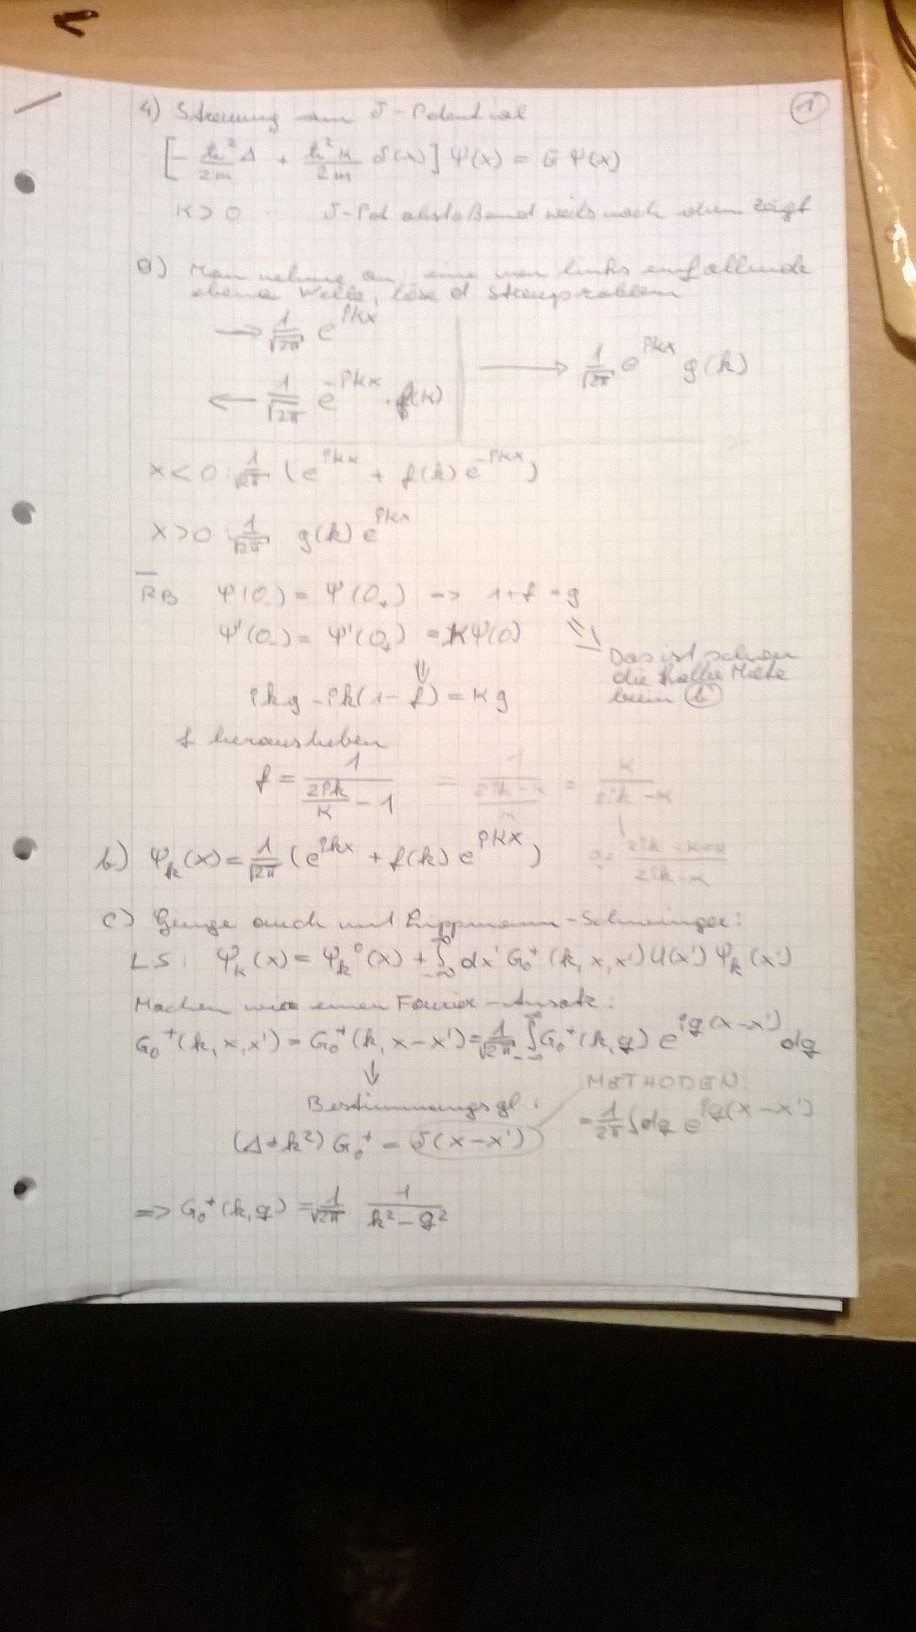 1
4) Streuung am δ-Potential
[-ħ²/2m Δ + ħ²κ/2m δ(x)] Ψ(x) = E Ψ(x)
κ > 0 δ-Pot abstoßend weils nach oben zeigt
a) Man nehme an, eine von links einfallende
ebene Welle, löse d Streuproblem
→ 1/√2π e^ikx
→ 1/√2π e^ikx g(k)
← 1/√2π e^-ikx · f(k)
x < 0 : 1/√2π (e^ikx + f(k) e^-ikx)
x > 0 : 1/√2π g(k) e^ikx
RB Ψ(0₋) = Ψ(0₊) => 1+f = g
Ψ'(0₋) = Ψ'(0₊) = κΨ(0)
Das ist schon
die halbe Miete
beim b)
⇓
ikg - ik(1-f) = κg
f herausheben
f = 1/(2ik/κ - 1) = 1/((2ik-κ)/κ) = κ/(2ik-κ)
g = (2ik-κ+κ)/(2ik-κ)
b) Ψ_k(x) = 1/√2π (e^ikx + f(k) e^ikx)
c) Genge auch mit Lippmann-Schwinger:
LS: Ψ_k(x) = Ψ_k⁰(x) + ∫_-∞^∞ dx' G₀⁺(k,x,x') U(x') Ψ_k(x')
Machen wir einen Fourier-Ansatz:
G₀⁺(k,x,x') = G₀⁺(k,x-x') = 1/√2π ∫_-∞^∞ G₀⁺(k,q) e^iq(x-x') dq
↓
METHODEN:
Bestimmungsgl:
= 1/2π ∫dq e^iq(x-x')
(Δ+k²) G₀⁺ = δ(x-x')
=> G₀⁺(k,q) = 1/√2π 1/(k²-q²)